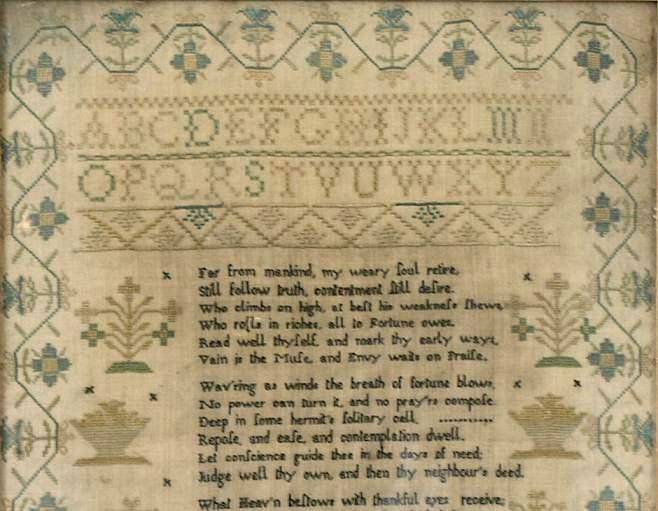 ABCDEFGHIJKLMN
OPQRSTVUWXYZ
Far from mankind, my weary ſoul retire,
Still follow truth, contentment ſtill deſire.
Who climbs on high, at beſt his weakneſs ſhews,
Who rolls in riches, all to Fortune owes.
Read well thyſelf, and mark thy early ways,
Vain is the Muſe, and Envy waits on Praiſe.
Wav'ring as winds the breath of fortune blows,
No power can turn it, and no pray'rs compoſe.
Deep in ſome hermit's ſolitary cell,
Repoſe, and eaſe, and contemplation dwell.
Let conſcience guide thee in the days of need;
Judge well thy own, and then thy neighbour's deed.
What Heav'n beſtows with thankful eyes receive;